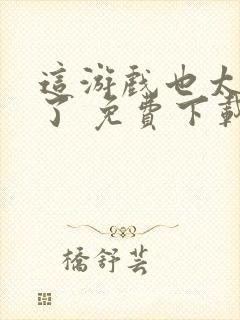 這游戲也太
了 免費下載
橋舒芸